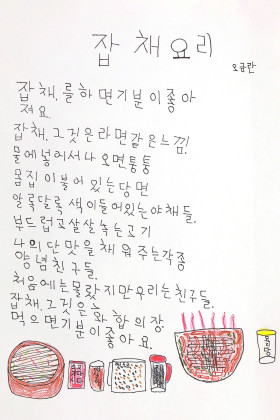 잡채요리
오금란
잡채,를하면기분이좋아
져요.
잡채,그것은라면같은느낌.
물에넣어서나오면퉁퉁
몸집이불어있는당면
알록달록색이들어있는야채들.
부드럽고살살녹는고기
나의단맛을채워주는각종
양념친구들.
처음에는몰랐지만우리는친구들.
잡채,그것은화합의장.
먹으면기분이좋아요.